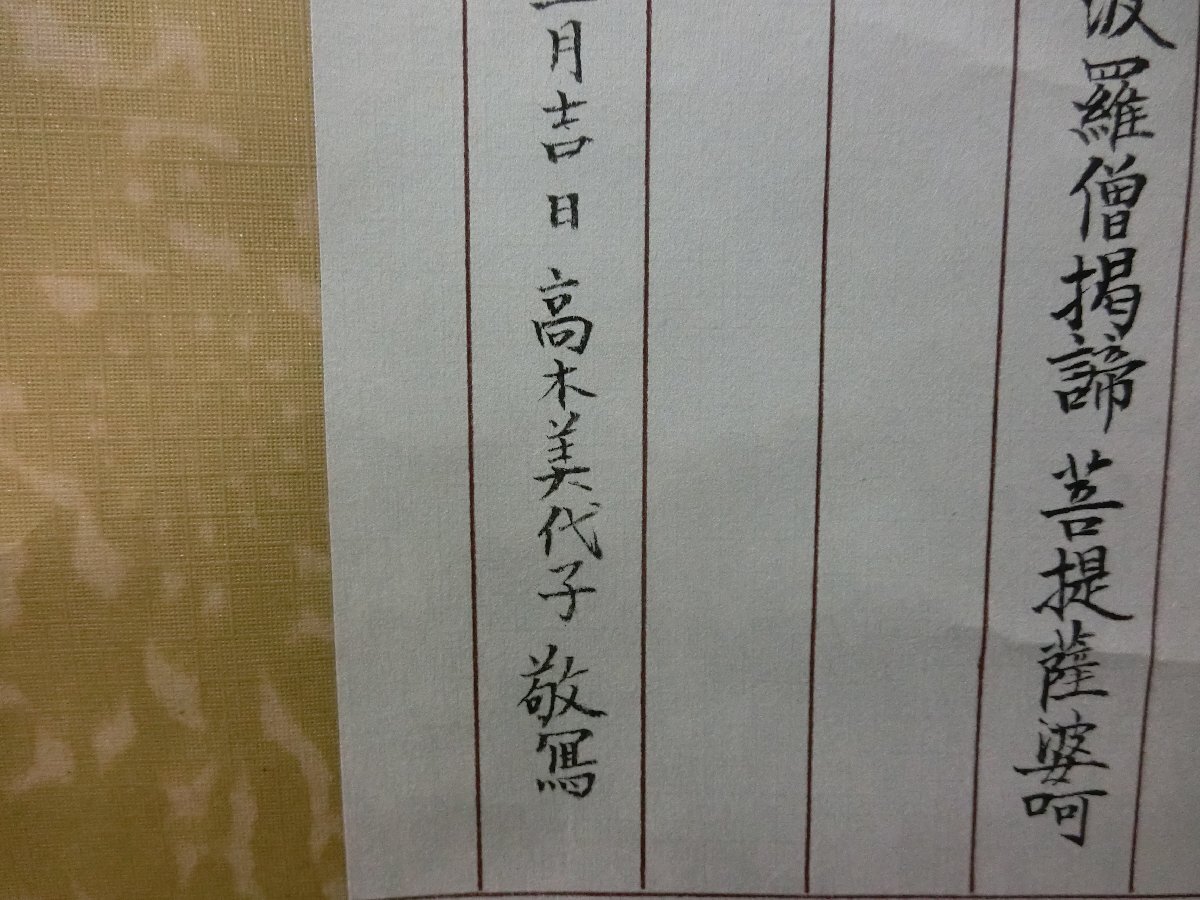 波羅僧揭諦 菩提薩婆呵
月吉日 高木美代子 敬寫